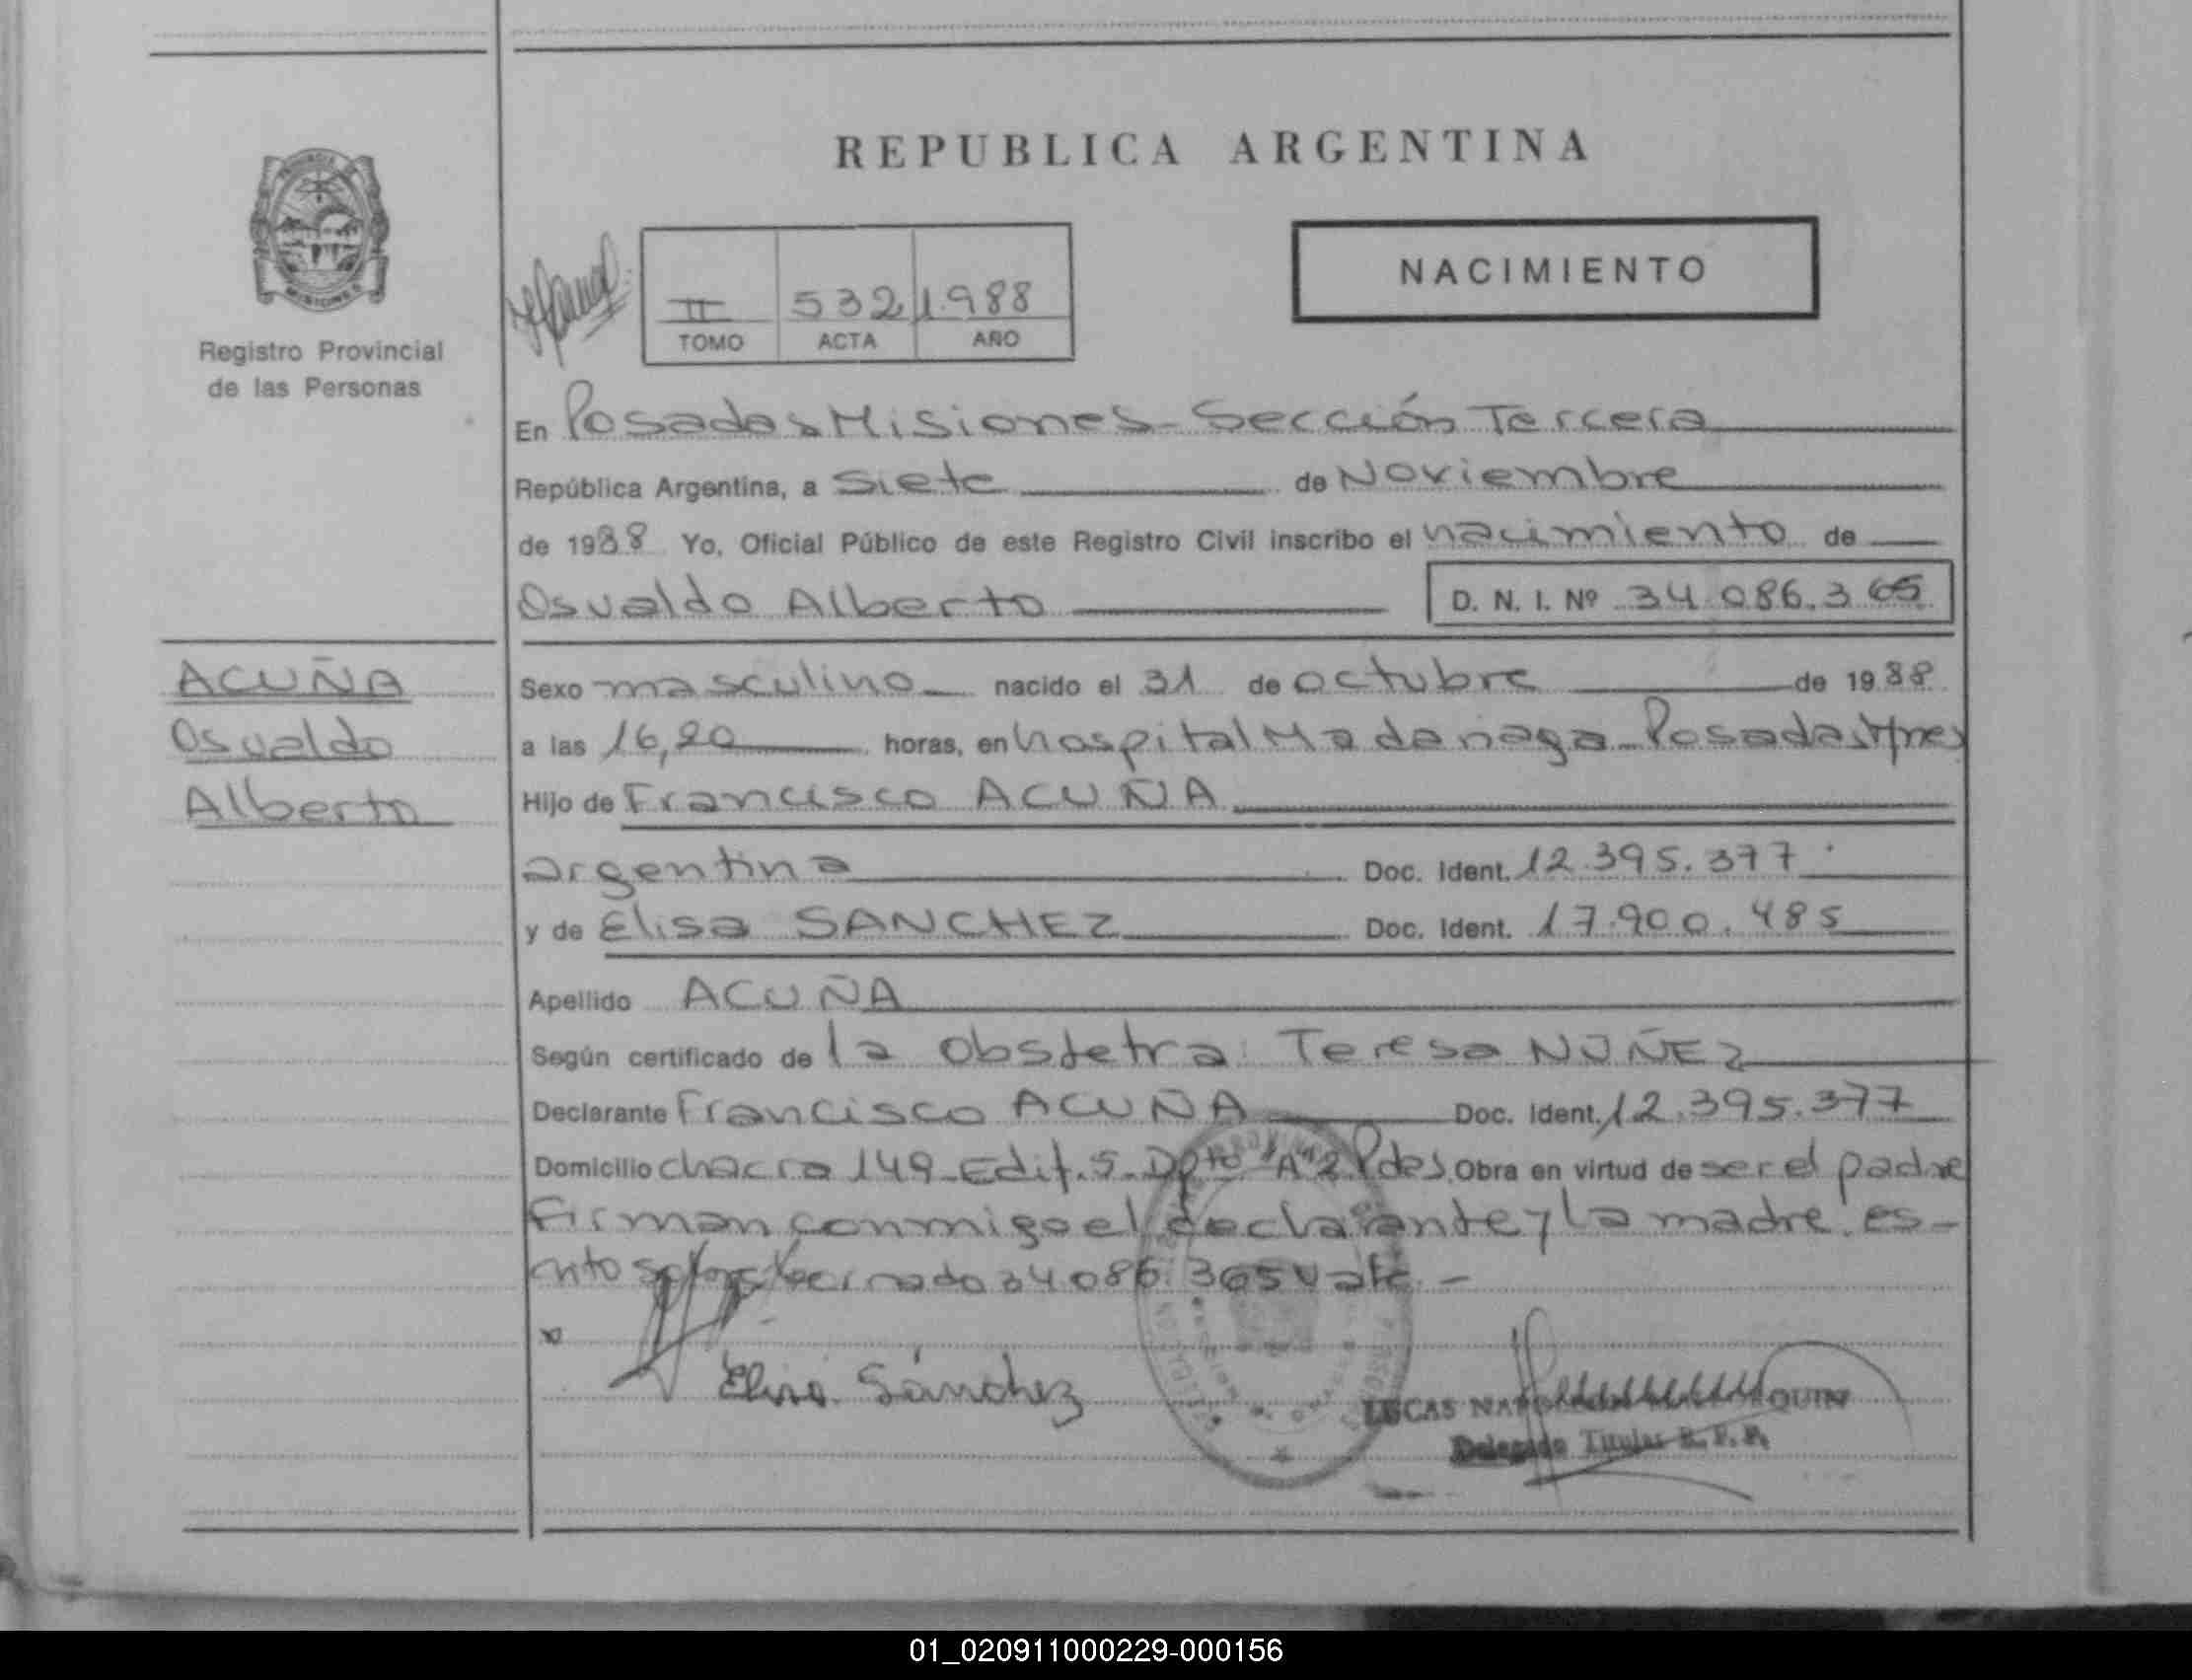 REPUBLICA ARGENTINA
NACIMIENTO
II 532 1988
TOMO ACTA AÑO
Registro Provincial
de las Personas
En Posadas Misiones - Sección Tercera
República Argentina, a Siete de Noviembre
de 1988 Yo, Oficial Público de este Registro Civil inscribo el nacimiento de
Osvaldo Alberto D. N. I. Nº 34.086.365
ACUÑA
Osvaldo
Alberto
Sexo masculino nacido el 31 de octubre de 1988
a las 16,20 horas, en hospital Madariaga - Posadas Mnes
Hijo de Francisco ACUÑA
argentina Doc. Ident. 12.395.377
y de Elisa SANCHEZ Doc. Ident. 17.900.485
Apellido ACUÑA
Según certificado de la obstetra: Teresa NUÑEZ
Declarante Francisco ACUÑA Doc. Ident. 12.395.377
Domicilio chacra 149 - Edif. 5 - Dpto "A" 2 Pdas Obra en virtud de ser el padre
Firman conmigo el declarante y la madre. es-
crito 34.086.365 vale. -
Elisa Sánchez
LUCAS QUIN
Delegado Titular R. P. P.
01_020911000229-000156